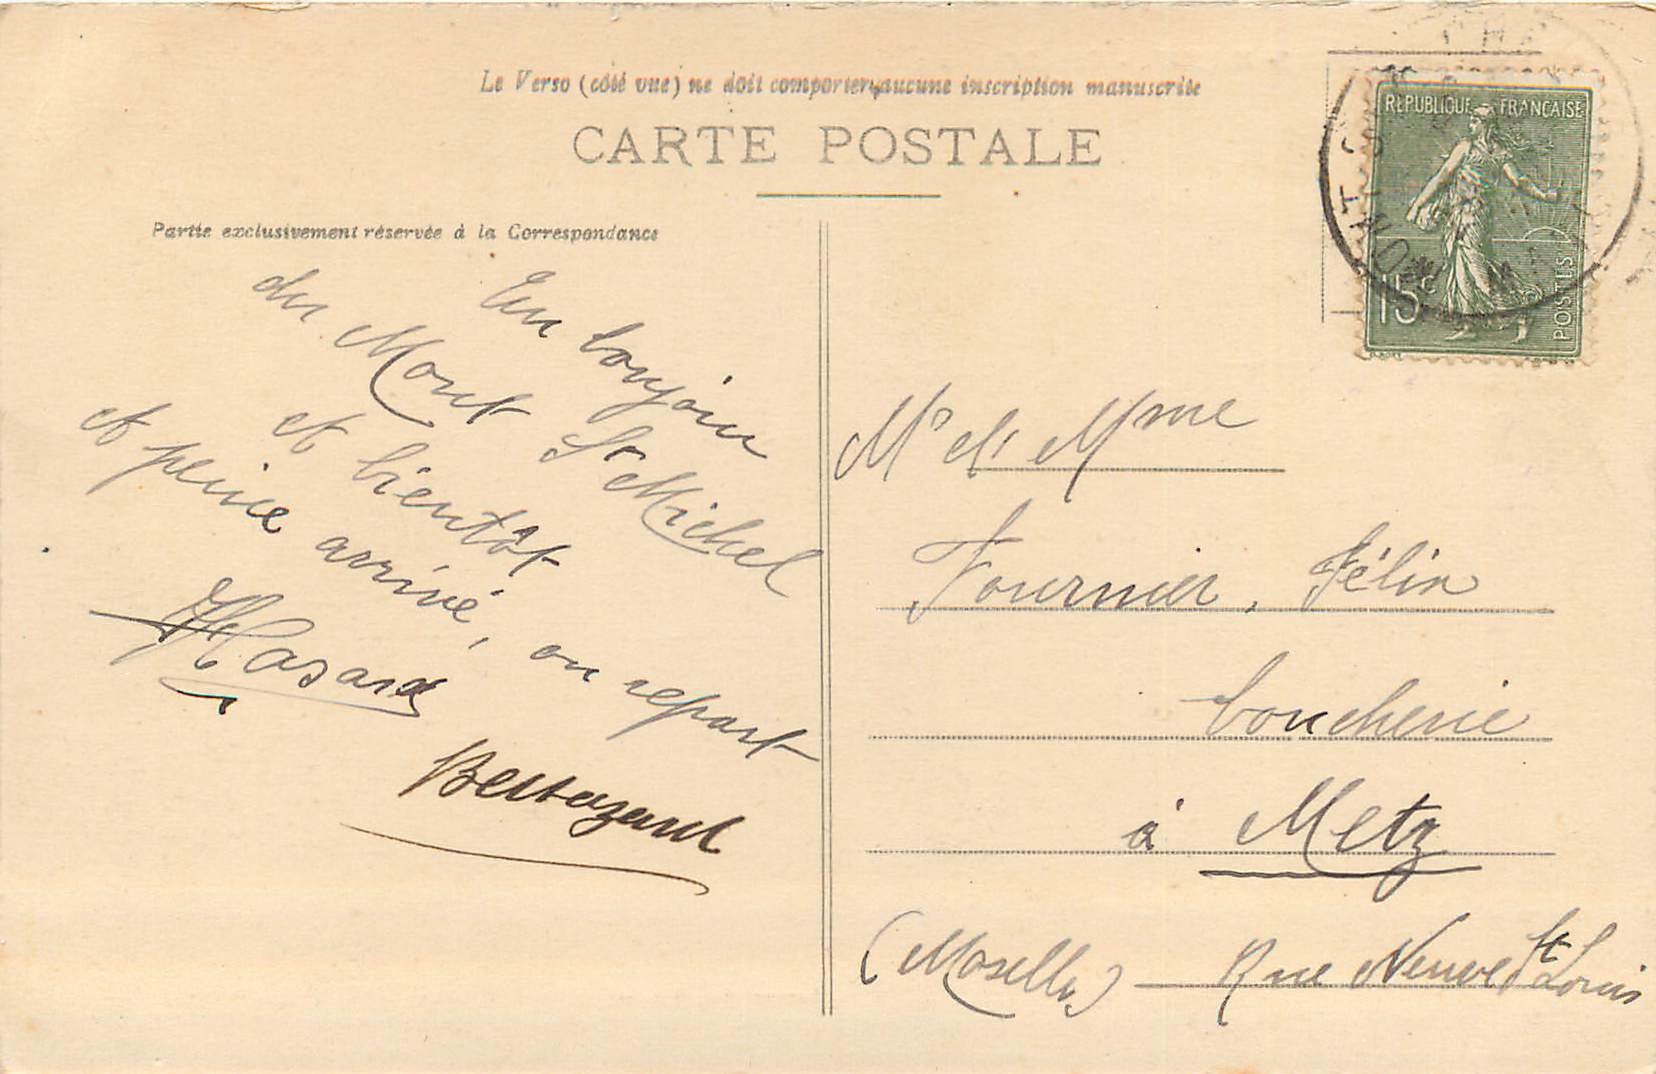 Le Verso (côté vue) ne doit comporter aucune inscription manuscrite
CARTE POSTALE
Partie exclusivement réservée à la Correspondance
REPUBLIQUE FRANÇAISE
15c
POSTES
MONT ST MICHEL
Un bonjour
du Mont St Michel
et bientôt
et peine arrivé, on repart
Hasard
Mr et Mme
Fournier, Félix
boucherie
à Metz
(Moselle) Rue Neuve St Louis